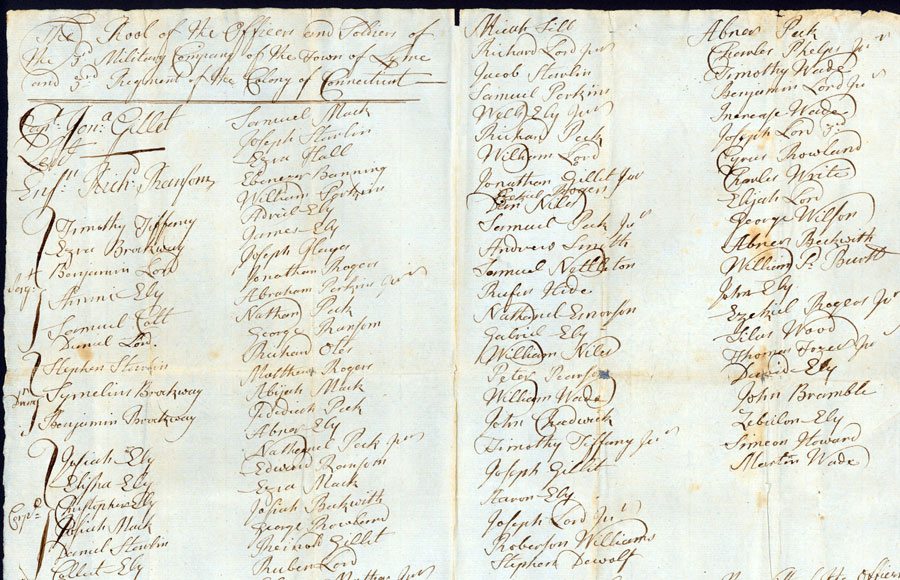 The Rool of the Officers and Soldiers of
the 3d Military Company of the Town of Lyme
and 3rd Regiment of the Colony of Connecticut
Capt. Jona. Gillet
Leut
Ens. Richd. Ransom
Sargt
Timothy Tiffany
Ezra Brockway
Benjamin Lord
Ammie Ely
Samuel Colt
Daniel Lord.
Stephen Starlin
Symelius Brockway
Benjamin Brockway
Corpl
Josiah Ely
Elisha Ely
Christopher Ely
Josiah Mack
Daniel Starlin
Ely
Samuel Mack
Joseph Starlin
Ezra Hall
Ebenezer Banning
William Perkins
Adriel Ely
James Ely
Joseph
Jonathan Rogers
Abraham Perkins Junr
Nathan Peck
George Ransom
Richard Otes
Matthew Rogers
Abijah Mack
Jedediah Peck
Abner Ely
Nathaniel Peck Junr
Edward Ransom
Ezra Mack
Josiah Beckwith
George Rowland
Gillet
Ruben Lord
Mather Junr
Micah Sill
Richard Lord Junr
Jacob Starlin
Samuel Perkins
Wells Ely Junr
Richard Peck
William Lord
Jonathan Gillet Junr
Ezekiel Rogers
Niles
Samuel Peck Jur
Andrew Smith
Samuel Nettleton
Rufus Hide
Nathaniel Emorson
Gabriel Ely
William Niles
Peter Pearson
William Wade
John Chadwick
Timothy Tiffany Junr
Joseph Gillet
Aaron Ely
Joseph Lord Junr
Roberson Williams
Stephen Dewolf
Abner Peck
Charles Phelps Junr
Timothy Wade
Benjamin Lord Junr
Increase Wade
Joseph Lord 3d
Cyrus Rowland
Charles Write
Elijah Lord
George Wilson
Abner Beckwith
William P. Burtt
John Ely
Ezekiel Rogers Jur
Silas Wood
Thomas Jur
David Ely
John Bramble
Zebulon Ely
Simeon Howard
Martin Wade